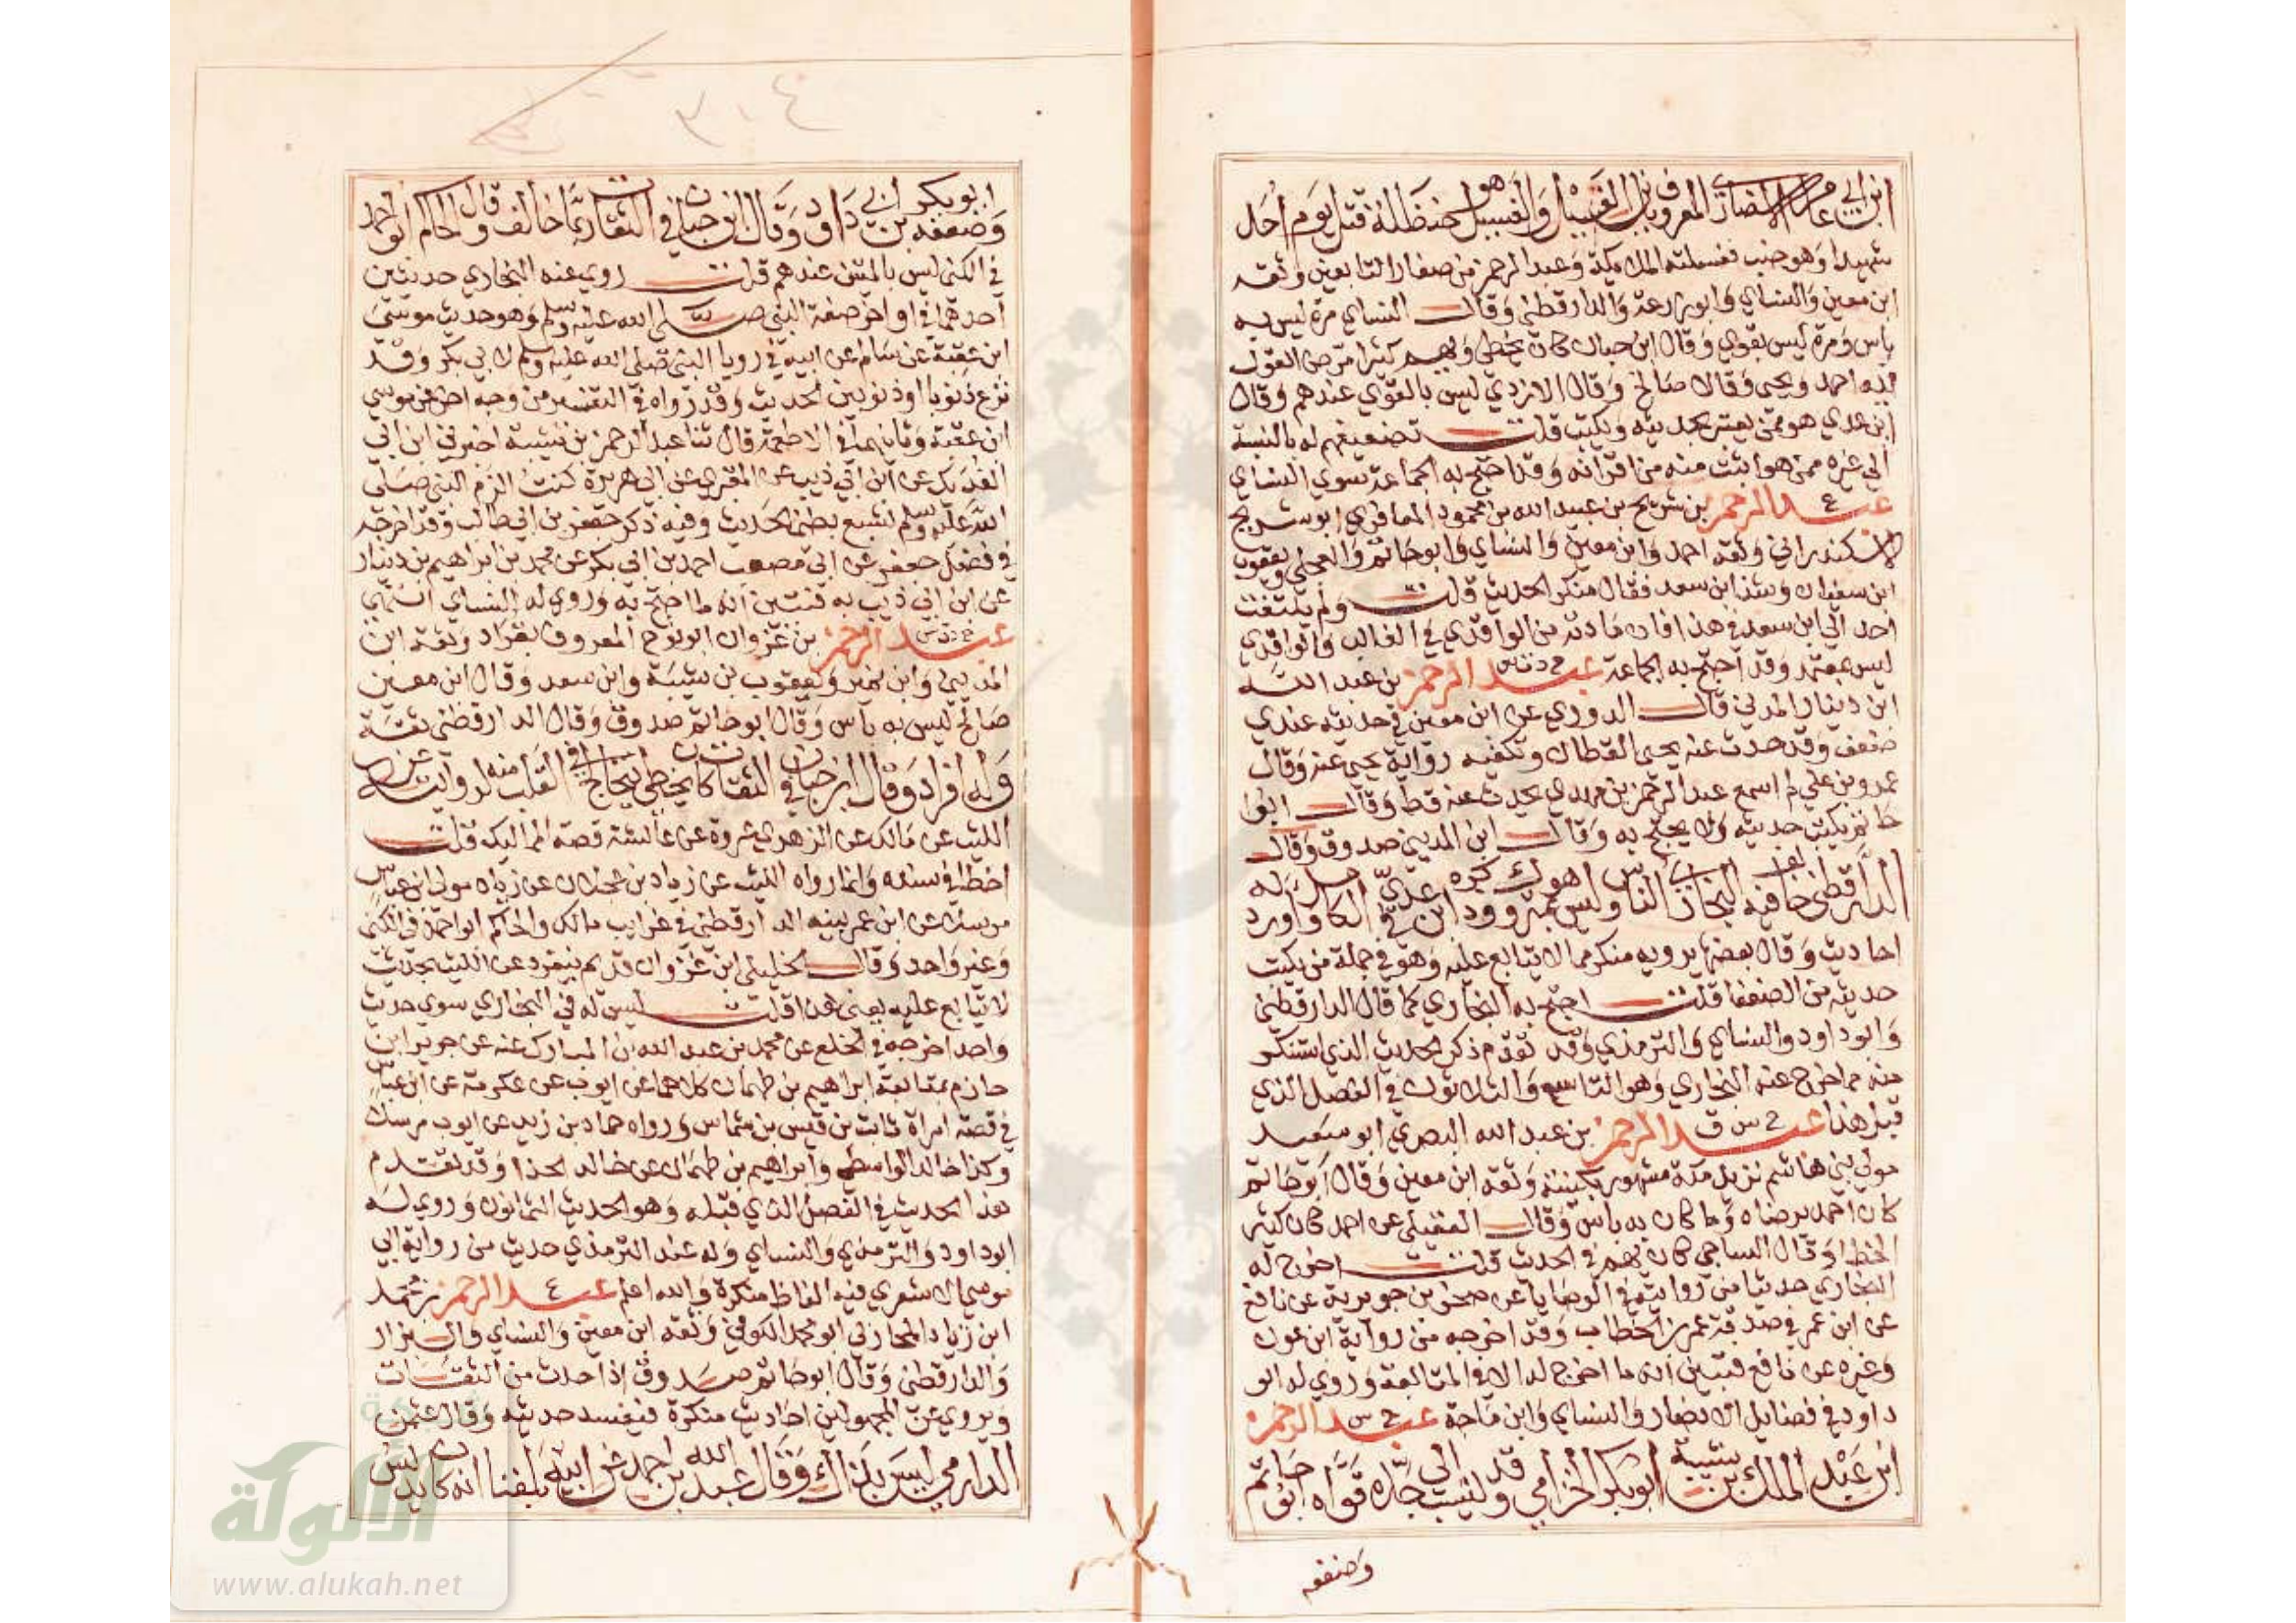 ابن ابي عامر الانصاري المعروف بابن الغسيل والغسيل هو حنظلة قتل يوم احد
شهيدا وهو جنب فغسلته الملائكة وعبد الرحمن من صغار التابعين وثقه
ابن معين والنساي وابو زرعة والدارقطني وقال النساي مرة ليس به
باس ومرة ليس بقوي وقال ابن حبان كان يخطي ويهم كثيرا مرض القول
فيه احمد ويحيى وقالا صالح وقال الازدي ليس بالقوي عندهم وقال
ابن عدي هو ممن يعتبر بحديثه ويكتب قلت تضعيفهم له بالنسبة
الى غيره ممن هو اثبت منه من اقرانه وقد احتج به الجماعة سوي النساي
ع عبد الرحمن بن شريح بن عبيد الله بن محمود المعافري ابو شريح
الاسكندراني وثقه احمد وابن معين والنساي وابو حاتم والعجلي ويعقوب
ابن سفيان وشذ ابن سعد فقال منكر الحديث قلت ولم يلتفت
احد الى ابن سعد في هذا فان مادته من الواقدي في الغالب والواقدي
ليس بمعتمد وقد احتج به الجماعة خ د ت س عبد الرحمن بن عبد الله
ابن دينار المدني قال الدوري عن ابن معين في حديثه عندي
ضعف وقد حدث عنه يحيى القطان وتكفيه رواية يحيى عنه وقال
عمرو بن علي لم اسمع عبد الرحمن بن مهدي يحدث عنه قط وقال ابوا
حاتم يكتب حديثه ولا يحتج به وقال ابن المديني صدوق وقال
الدارقطني خالف فيه البخاري الناس وليس هو بمتروك وذكره ابن عدي في الكامل واورد له
احاديث وقال بعض ما يرويه منكر مما لا يتابع عليه وهو في جملة من يكتب
حديثه من الضعفا قلت احتج به البخاري كما قال الدارقطني
وابو داود والنساي والترمذي وقد تقدم ذكر الحديث الذي استنكر
منه مما خرج عنه البخاري وهو التاسع والثلاثون في الفصل الذي
قبل هذا خ س ق عبد الرحمن بن عبد الله البصري ابو سعيد
مولى بني هاشم نزيل مكة مشهور بكنيته وثقه ابن معين وقال ابو حاتم
كان احمد يرضاه وما كان به باس وقال العقيلي عن احمد كان كثير
الخطا وقال الساجي كان يهم في الحديث قلت اخرج له
البخاري حديثا من روايته في الوصايا عن صخر بن جويرية عن نافع
عن ابن عمر في صدقة عمر بن الخطاب وقد اخرجه من رواية ابن عون
وغيره عن نافع فتبين انه ما اخرج له الا في المتابعة وروي له ابو
داود في فضايل الانصار والنساي وابن ماجة خ س عبد الرحمن
ابن عبد الملك بن شيبة ابو بكر الخزامي وقد نسب الى جده قواه ابو حاتم
وضعفه
٣٠٤
وضعفه ابو بكر بن ابي داود وقال ابن حبان في الثقات ربما خالف وقال الحاكم ابو احمد
في الكنى ليس بالمتين عندهم قلت روي عنه البخاري حديثين
احدهما في اواخر صفة النبي صلى الله عليه وسلم وهو حديث موسى
ابن عقبة عن سالم عن ابيه في رويا النبي صلى الله عليه وسلم لابي بكر وقد
نزع ذنوبا او ذنوبين الحديث وقد رواه في التفسير من وجه اخر عن موسي
ابن عقبة وثانيهما في الاطعمة قال ثنا عبد الرحمن بن شيبة اخبرني ابن ابي
الفديك عن ابن ابي ذيب عن المقبري عن ابي هريرة كنت الزم النبي صلى
الله عليه وسلم لشبع بطني الحديث وفيه ذكر جعفر بن ابي طالب وقد اخرجه
في فضل جعفر عن ابي مصعب احمد بن ابي بكر عن محمد بن ابراهيم بن دينار
عن ابن ابي ذيب به فتبين انه ما احتج به وروي له النساي انتهى
خ د ت س عبد الرحمن بن غزوان ابو نوح المعروف بقراد وثقه ابن
المديني وابن نمير ويعقوب بن شيبة وابن سعد وقال ابن معين
صالح ليس به باس وقال ابو حاتم صدوق وقال الدارقطني ثقة
وله افراد وقال ابن حبان في الثقات كان يخطي يتخالج في القلب منه لروايته عن
الليث عن مالك عن الزهري عن عروة عن عائشة قصة المماليك قلت
اخطا في سنده وانما رواه الليث عن زياد بن عجلان عن زياد مولى ابن عياش
مرسلا بينه الدارقطني في غرايب مالك والحاكم ابو احمد في الكنى
وغير واحد وقال الخليلي ابن غزوان قديم ينفرد عن الليث بحديث
لا يتابع عليه يعني هذا قلت ليس له في البخاري سوي حديث
واحد اخرجه في الخلع عن محمد بن عبد الله بن المبارك عنه عن جرير ابن
حازم بمتابعة ابراهيم بن طهمان كلاهما عن ايوب عن عكرمة عن ابن عباس
في قصة امراة ثابت بن قيس بن شماس ورواه حماد بن زيد عن ايوب مرسلا
وكذا خالد الواسطي وابراهيم بن طهمان عن خالد الحذا وقد تقدم
هذا الحديث في الفصل الذي قبله وهو الحديث الثمانون وروي له
ابو داود والترمذي والنساي وله عند الترمذي حديث من رواية ابي
موسى الاشعري فيه الفاظ منكرة والله اعلم ع عبد الرحمن بن محمد
ابن زياد المحاربي ابو محمد الكوفي وثقه ابن معين والنساي والبزار
والدارقطني وقال ابو حاتم صدوق اذا حدث من الثقات
ويروي عن المجهولين احاديث منكرة فيفسد حديثه وقال عثمن
الدارمي ليس بذاك وقال عبد الله بن احمد عن ابيه بلغنا انه كان يدلس
الألوكة
www.alukah.net